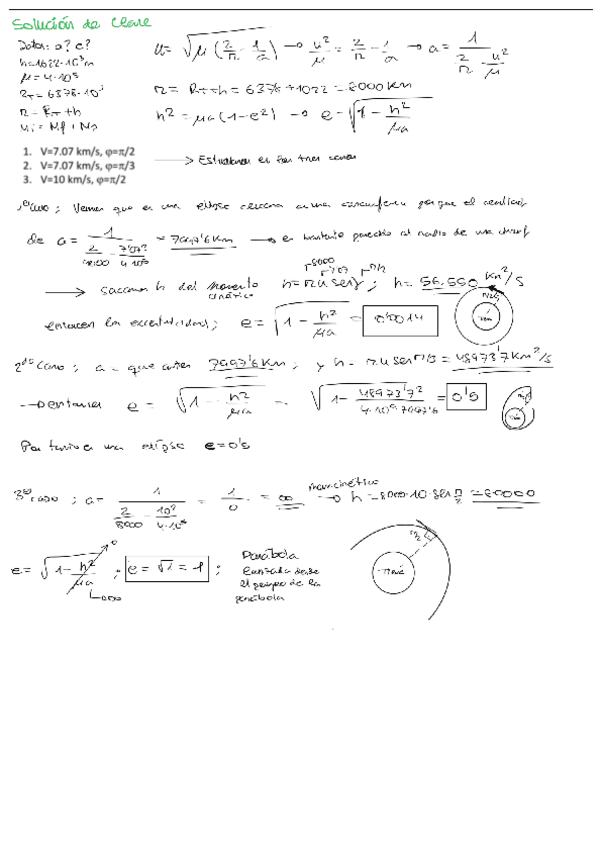 Solución de clase
Datos: a? e?
h=1622·10³m
μ=4·10⁵
R_T=6378·10³
r=R_T+h
u = √μ(2/r - 1/a) → u²/μ = 2/r - 1/a → a = 1/(2/r - u²/μ)
r = R_T+h = 6378+1622 = 8000 Km
h² = μa(1-e²) → e = √1 - h²/μa
1. V=7.07 km/s, φ=π/2
2. V=7.07 km/s, φ=π/3
3. V=10 km/s, φ=π/2
→ Estudiamos en los tres casos
1er caso; Vemos que es una elipse cercana a una circunferencia porque el
de a = 1/(2/8000 - 7'07²/4·10⁵) = 7997'6 Km → es bastante parecido al radio de una
→ sacamos h del momento cinético h = r u sen φ; h = 56.560 Km²/s
8000 7'07 π/2
entonces la excentricidad; e = √1 - h²/μa = 0'0014
2do caso; a = que antes 7997'6 Km; y h = r u sen π/3 = 48973'7 Km²/s
e = √1 - h²/μa = √1 - 48973'7²/4·10⁵·7997'6 = 0'5
Por tanto es una elipse e=0'5
3er caso; a = 1/(2/8000 - 10²/4·10⁵) = 1/0 = ∞ → h = 8000·10·sen π/2 = 80000
mom. cinético
e = √1 - h²/μa; e = √1 = 1;
0
∞
Parábola
lanzada desde
el perigeo de la
parábola
π/2
Tierra